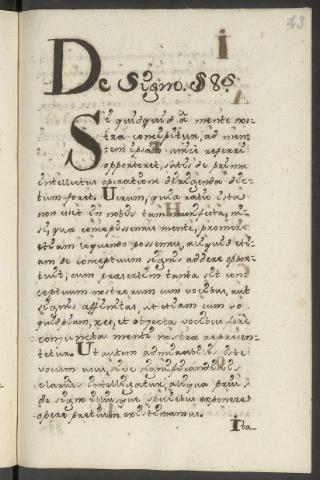 43
De Signo. §8§
Si quidquid à mente nos-
tra concipitur, ad men-
tem ipsam unicè referri
opporteret, satis de prima
intellectus operatione dirigenda dic-
tum foret. Verum, quia ratio ista
non est in nobis tam manifesta, ni-
si, quæ concepissemus mente, promere
etiam loquendo possemus, aliquid eti-
am de conceptuum signis addere oppor-
tuit; cum præsertim tanta sit con-
ceptuum nostrorum cum vocibus, aut
signis affinitas, ut etiam cum so-
li res, et objecta vocibus ferè
conjuncta menti nostræ repræsen-
tetur. Ut autem admirabilis iste
vocum usus, sive significandi vis
clarius intelligatur, aliqua prius
de signo illiusque speciebus exponere
operæ pretium existimamus.
Ita-